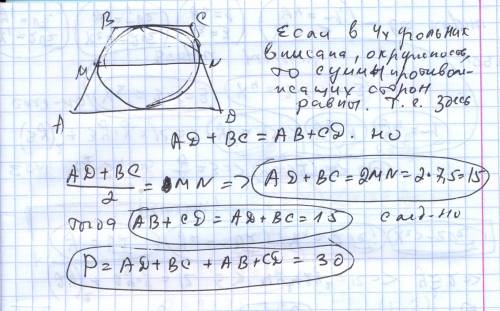 B C
M N
A D
Если в 4х угольник
вписана, окружность,
то суммы противоле-
жащих сторон
равны. Т.е. здесь
AD + BC = AB + CD. но
AD + BC / 2 = MN => AD + BC = 2MN = 2·7,5 = 15
тогда AB + CD = AD + BC = 15 след-но
P = AD + BC + AB + CD = 30